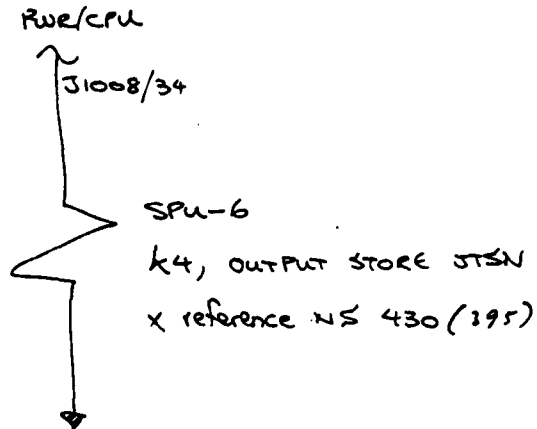 RWR/CPU
J1008/34
SPU-6
k4, OUTPUT STORE JTSN
x reference NS 430 (395)